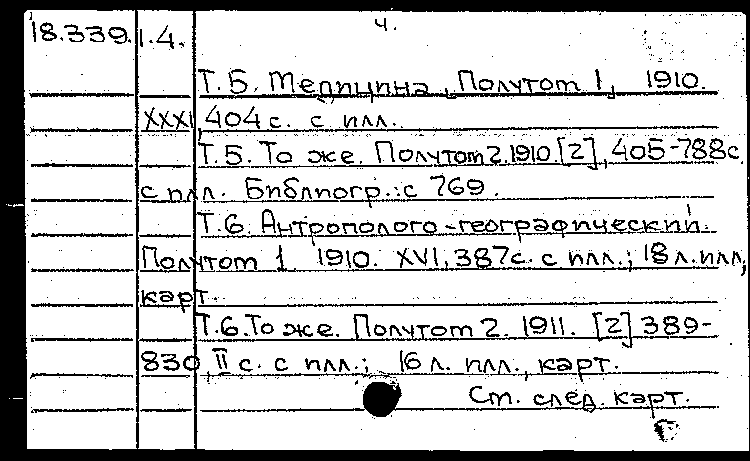 18.339.1.4. 4.
Т.5. Медицина, Полутом 1, 1910.
XXXI, 404 с. с илл.
Т.5. То же. Полутом 2. 1910. [2], 405-788с.
с илл. Библиогр.: с 769.
Т.6. Антрополого-географический.
Полутом 1 1910. XVI, 387с. с илл.; 18 л. илл,
карт.
Т.6. То же. Полутом 2. 1911. [2] 389-
830, II с. с илл.; 16 л. илл., карт.
Ст. след. карт.